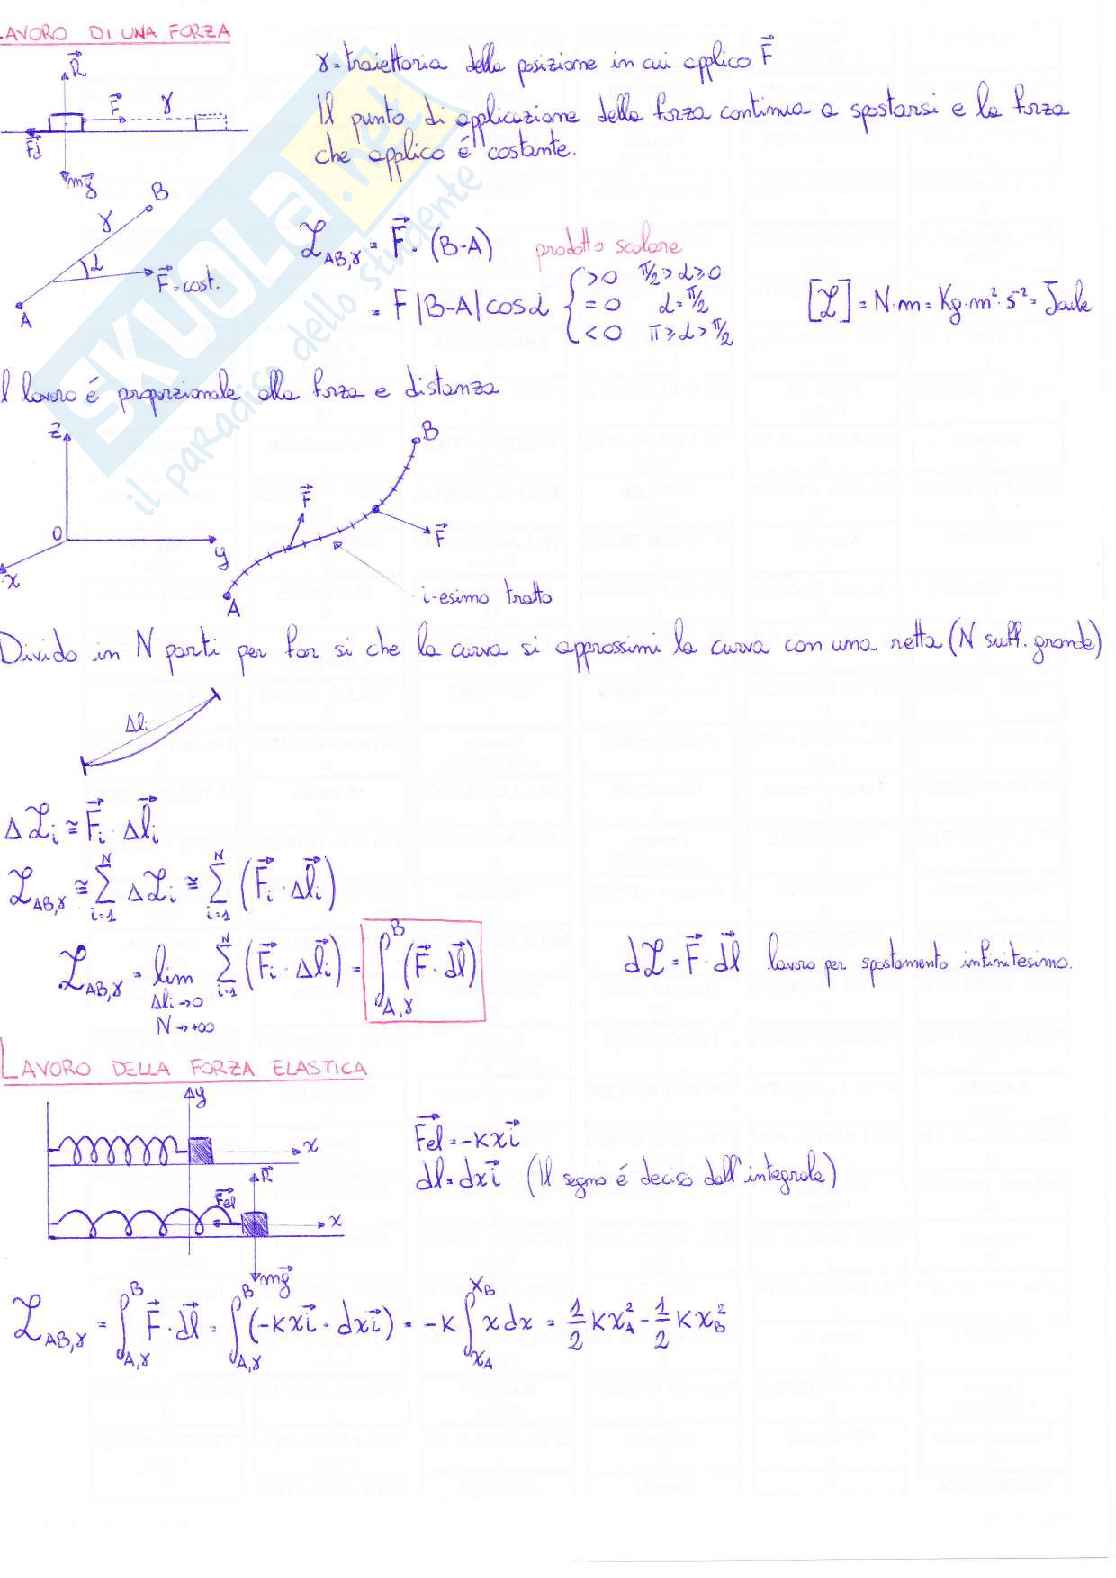 LAVORO DI UNA FORZA
R⃗
F⃗ γ
F⃗d
mg⃗
γ = traiettoria della posizione in cui applico F⃗
Il punto di applicazione della forza continua a spostarsi e la forza
che applico é costante.
B
γ
α
F⃗ = cost.
A
ℒ_AB,γ = F⃗ · (B-A) prodotto scalare
= F |B-A| cosα { >0 π/2 > α ≥ 0
= 0 α = π/2
< 0 π ≥ α > π/2
[ℒ] = N·m = Kg·m²·s⁻² = Joule
l lavoro é proporzionale alla forza e distanza
z
O
y
x
B
F⃗
F⃗
A
i-esimo tratto
Divido in N parti per far si che la curva si approssimi la curva con una retta (N suff. grande)
Δli
Δℒi ≅ F⃗i · Δl⃗i
ℒ_AB,γ ≅ ∑_{i=1}^{N} Δℒi ≅ ∑_{i=1}^{N} (F⃗i · Δl⃗i)
ℒ_AB,γ = lim_{Δli→0, N→+∞} ∑_{i=1}^{N} (F⃗i · Δl⃗i) = ∫_{A,γ}^{B} (F⃗ · dl⃗)
dℒ = F⃗ · dl⃗ lavoro per spostamento infinitesimo.
LAVORO DELLA FORZA ELASTICA
y
x
R⃗
F⃗el
x
mg⃗
F⃗el = -kx i⃗
dl = dx i⃗ (Il segno é deciso dall'integrale)
ℒ_AB,γ = ∫_{A,γ}^{B} F⃗ · dl⃗ = ∫_{A,γ}^{B} (-kx i⃗ · dx i⃗) = -k ∫_{xA}^{xB} x dx = 1/2 k x_A² - 1/2 k x_B²
SKUOLA.net
il paradiso dello studente